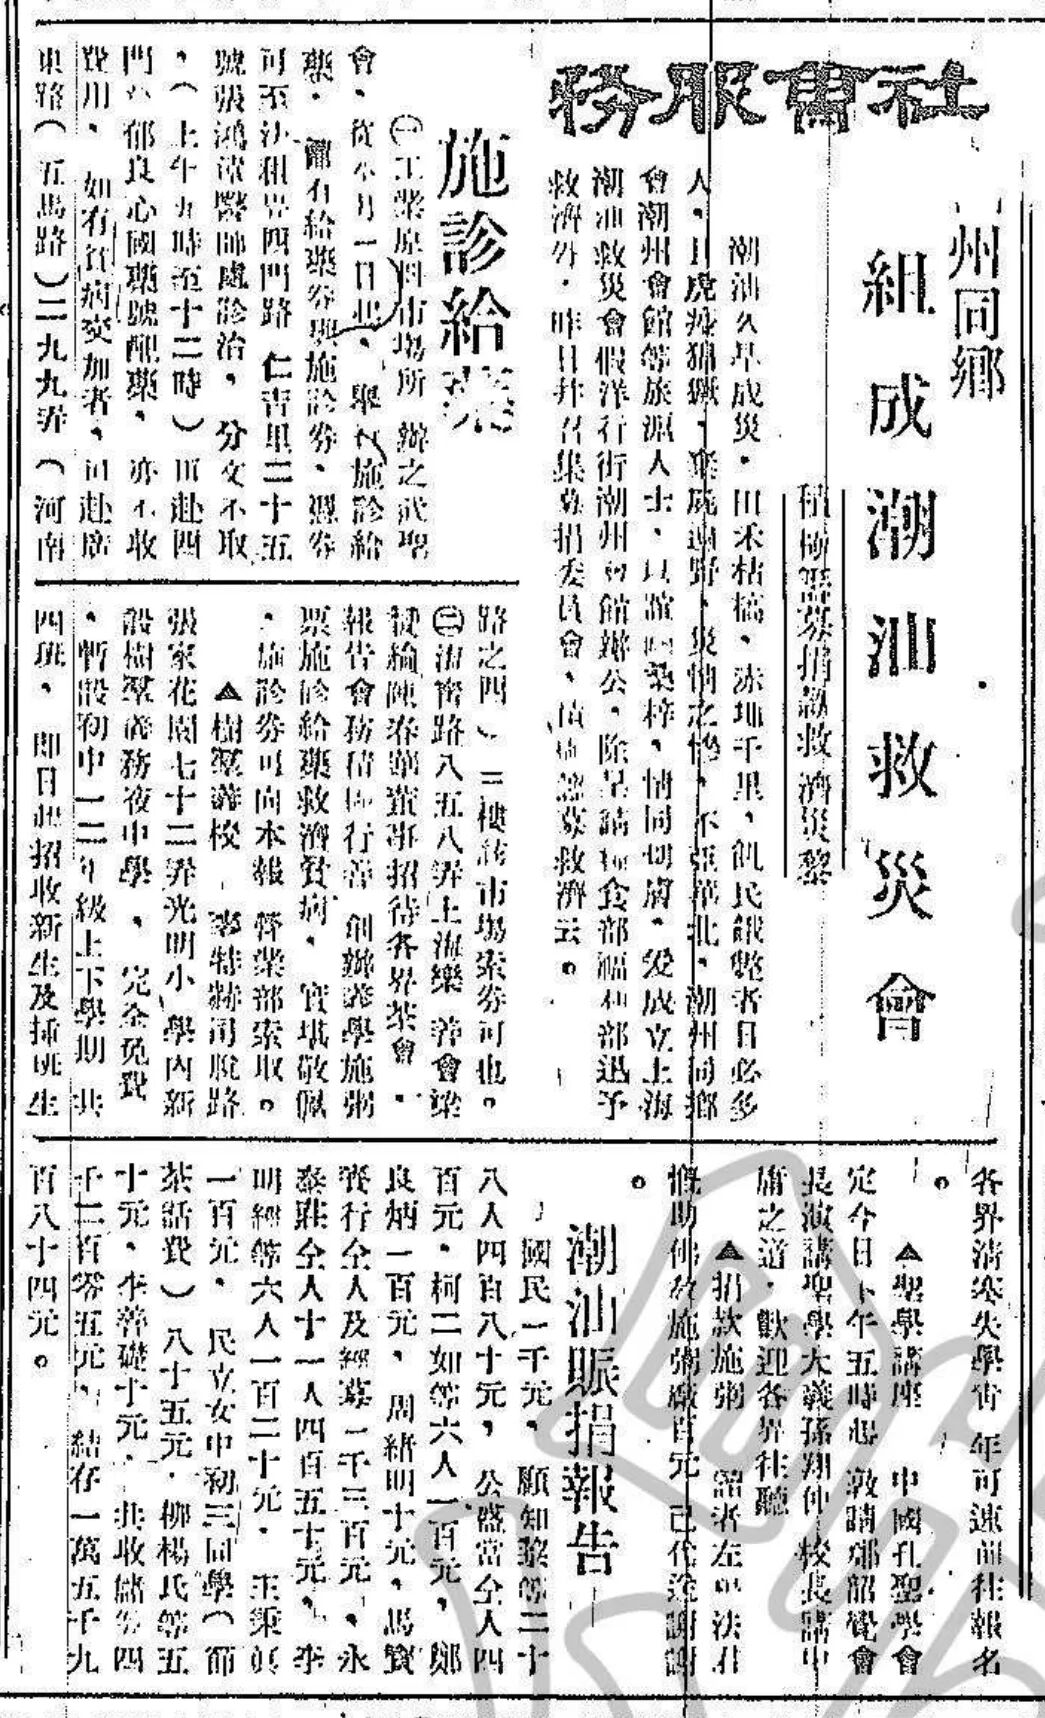 社會服務
州同鄉
組成潮汕救災會
積極募捐救濟災黎
潮汕久旱成災、田禾枯槁、赤地千里、飢民餓斃者日必多
人、且虎疫猖獗、棄屍遍野、災情之慘、不亞華北、潮州同鄉
會潮州會館等旅滬人士、以誼梓、情同切膚、爰成立上海
潮汕救災會假洋行街潮州會館辦公、除呈請糧食部福利部迅予
救濟外、昨日并召集募捐委員會、募救濟云。
施診給藥
㊀工業原料市場所辦之武聖
會、從本月一日起、舉行施診給
藥、備有給藥券與施診券、憑券
可至法租界四門路仁吉里二十五
號張鴻醫師處診治、分文不取
、(上午九時至十二時)可赴四
門郁良心國藥號配藥、亦不收
費用、如有貧病交加者、可赴廣
東路(五馬路)二九九弄(河南
路之四)三樓該市場索券可也。
㊁海甯路八五八弄上海樂善會梁
陳春華董事招待各界茶會、
報告會務積極行善創辦義學施粥
票施診給藥救濟貧病、實堪敬佩
、施診券可向本報營業部索取。
▲樹羣義校 麥特赫司脫路
張家花園七十二弄光明小學內新
設樹羣義務夜中學、完全免費
、暫設初中一二年級上下學期共
四班、卽日起招收新生及插班生
各界清寒失學青年可速前往報名
。
▲聖學講座 中國孔聖學會
定今日下午五時起敦請鄭韶覺會
長演講聖學大義孫翔仲校長講中
庸之道、歡迎各界往聽
▲捐款施粥 讀者左法君
慨助佛教施粥廠百元已代送謝謝
。
潮汕賑捐報告
國民一千元、顧知黎等二十
八人四百八十元、公盛當仝人四
百元、柯二如等六人一百元、鄭
良炳一百元、周緒明十元、馬寶
行仝人及經募一千三百元、永
泰莊仝人十一人四百五十元、李
明經等六人一百二十元、王秉
一百元、民立女中初三同學(節
茶話費)八十五元、柳楊氏等五
十元、李善礎十元、共收儲券四
千二百零五元、結存一萬五千九
百八十四元。